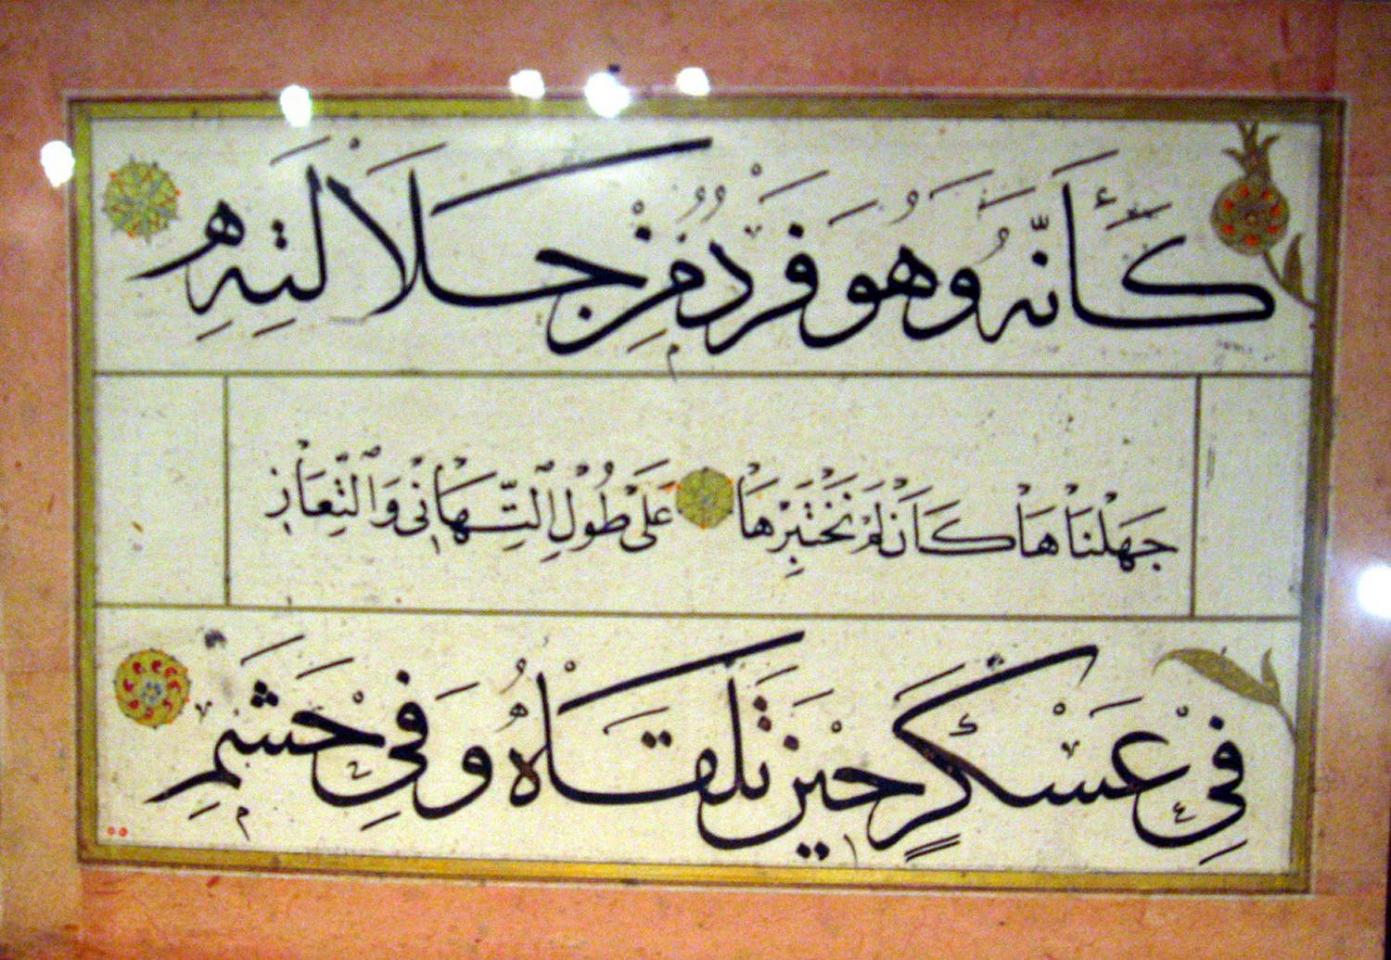 كَأَنَّهُ وَهُوَ فَرْدٌ مِنْ جَلَالَتِهِ
جَهِلْنَاهَا كَأَنْ لَمْ نَخْتَبِرْهَا عَلَى طُولِ التَّهَانِي وَالتَّعَازِ
فِي عَسْكَرٍ حِينَ تَلْقَاهُ وَفِي حَشَمِ